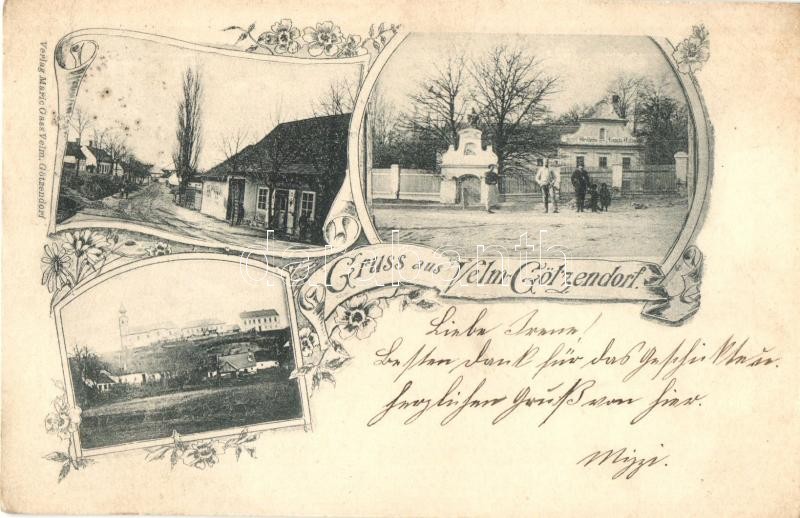 Verlag Marie Gass Velm. Götzendorf
Gruss aus Velm-Götzendorf.
Liebe Irene!
Besten Dank für das Geschickte u.
herzlichen Gruß von hier.
Mizzi.